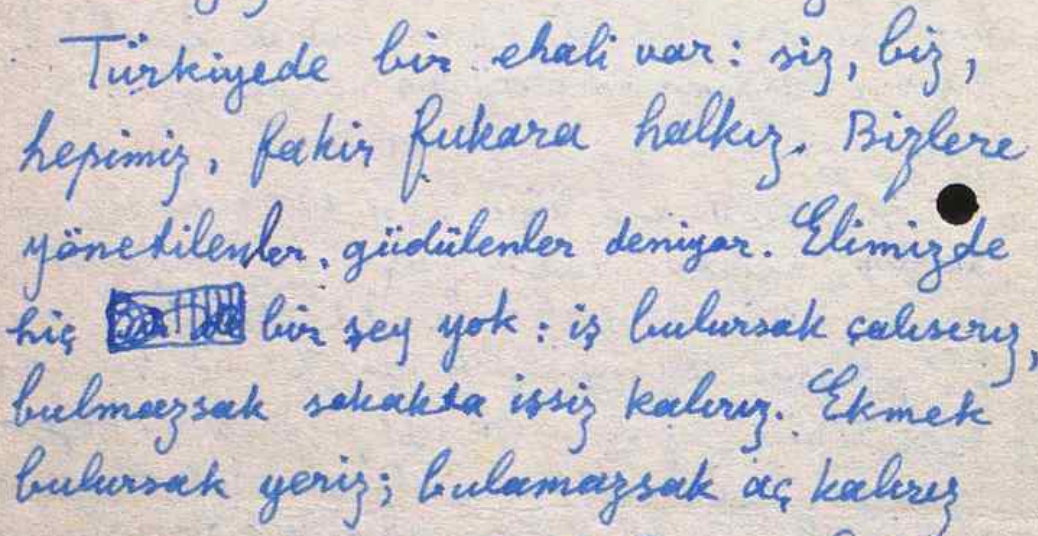 Türkiyede bir ehali var: siz, biz,
hepimiz, fakir fukara halkız. Bizlere
yönetilenler, güdülenler deniyor. Elimizde
hiç bir şey yok: iş bulursak çalışırız,
bulmazsak sokakta işsiz kalırız. Ekmek
bulursak yeriz; bulamazsak aç kalırız